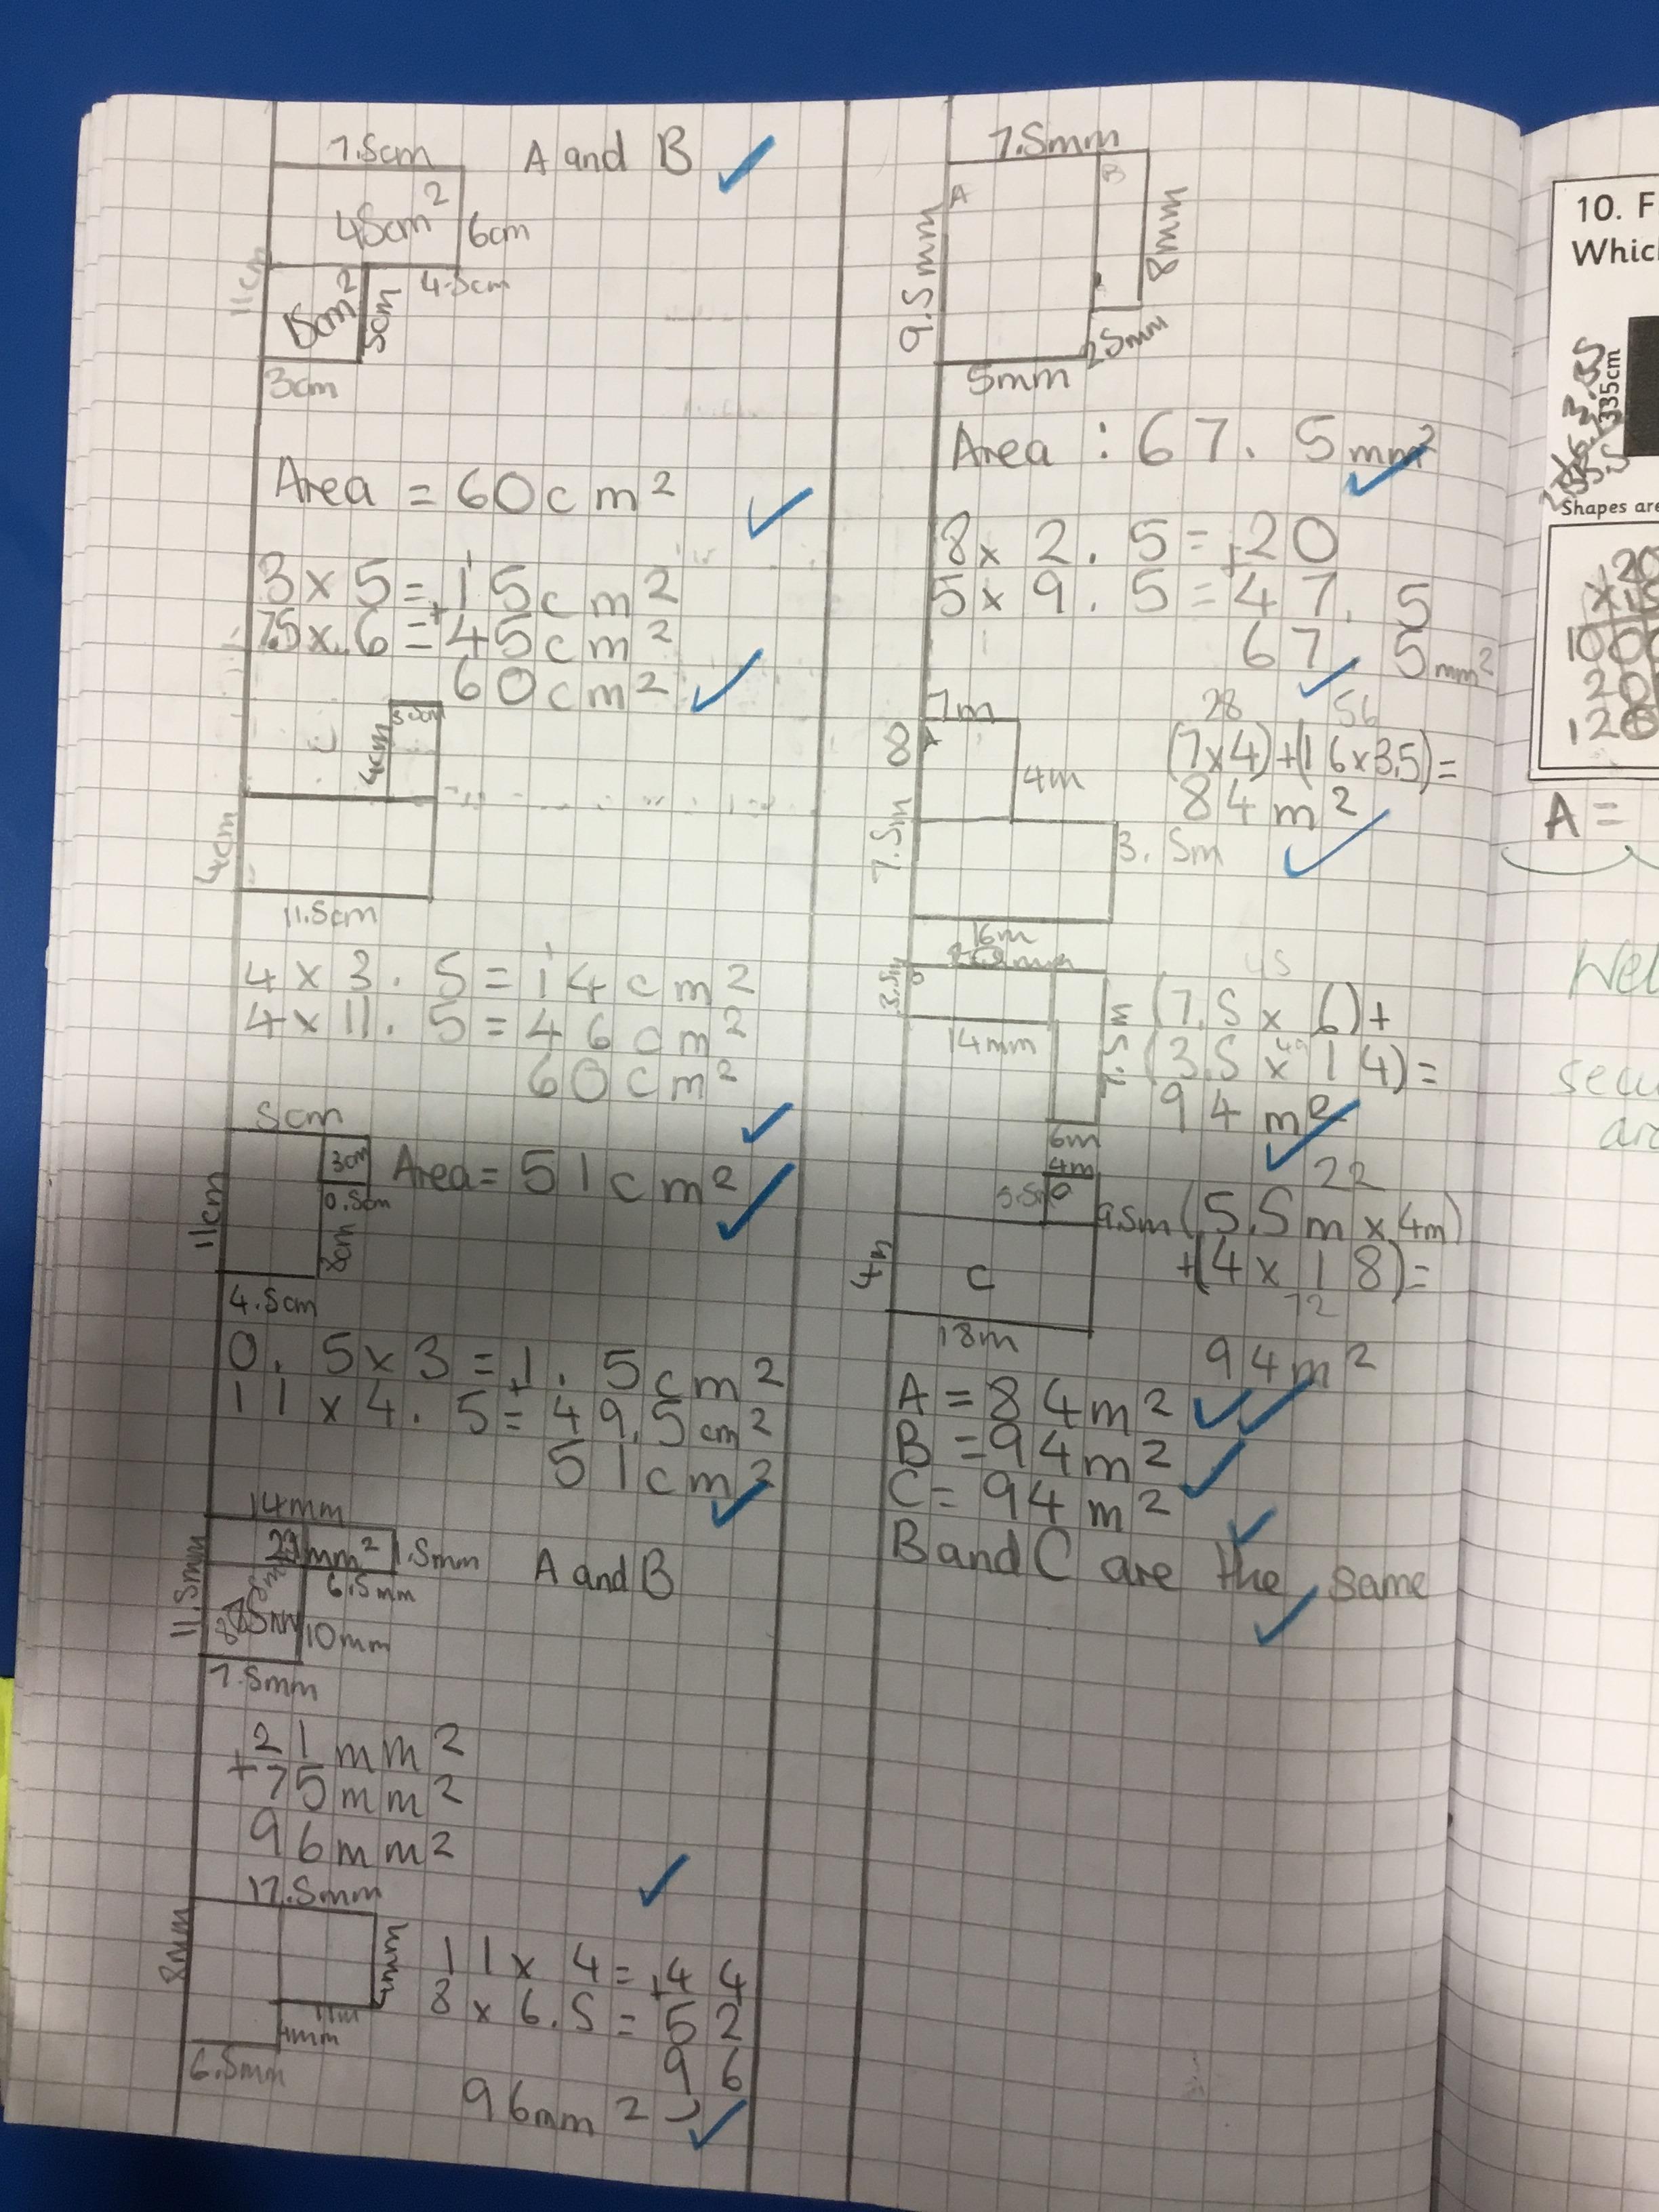 7.5cm A and B
45cm²
6cm
11cm
4.5cm
15cm²
5cm
3cm
Area = 60cm²
3 x 5 = 15cm2
7.5 x 6 = + 45cm2
60cm2
3.5cm
4cm
4cm
11.5cm
4 x 3.5 = 14cm2
4 x 11.5 = 46cm2
60cm2
5cm
3cm
Area = 51cm2
0.5cm
11cm
8cm
4.5cm
0.5 x 3 = 1.5cm2
11 x 4.5 = + 49.5cm2
51cm2
14mm
1.5mm
A and B
6.5mm
11.5mm
10mm
7.5mm
21mm2
+ 75mm2
96mm2
17.5mm
8mm
4mm
11 x 4 = 44
8 x 6.5 = + 52
4mm
96
6.5mm
96mm2
7.5mm
A
B
9.5mm
8mm
2.5mm
5mm
Area : 67.5mm²
8 x 2.5 = 20
5 x 9.5 = + 47.5
67.5mm2
7m
28 56
8
(7x4)+(16x3.5)=
4m
84m2
7.5m
3.5m
16m
45
3.5m
(7.5 x 6)+
14mm
7.5m
49
(3.5 x 14)=
94m2
6m
4m
22
5.5m
9.5m
(5.5m x 4m)
+(4 x 18)=
72
4m
C
18m
94m2
A = 84m2
B = 94m2
C = 94m2
B and C are the same
10. F
Whic
335cm
Shapes are
A =
Wel
secu